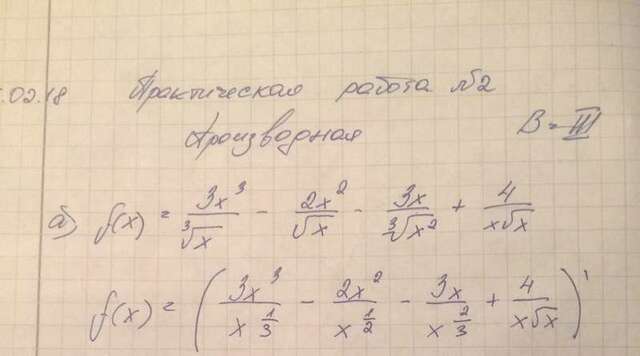 .02.18 Практическая работа №2
Производная В=III
б) f(x) = 3x³/∛x − 2x²/√x − 3x/∛x² + 4/x√x
f(x) = (3x³/x^(1/3) − 2x²/x^(1/2) − 3x/x^(2/3) + 4/x√x)'